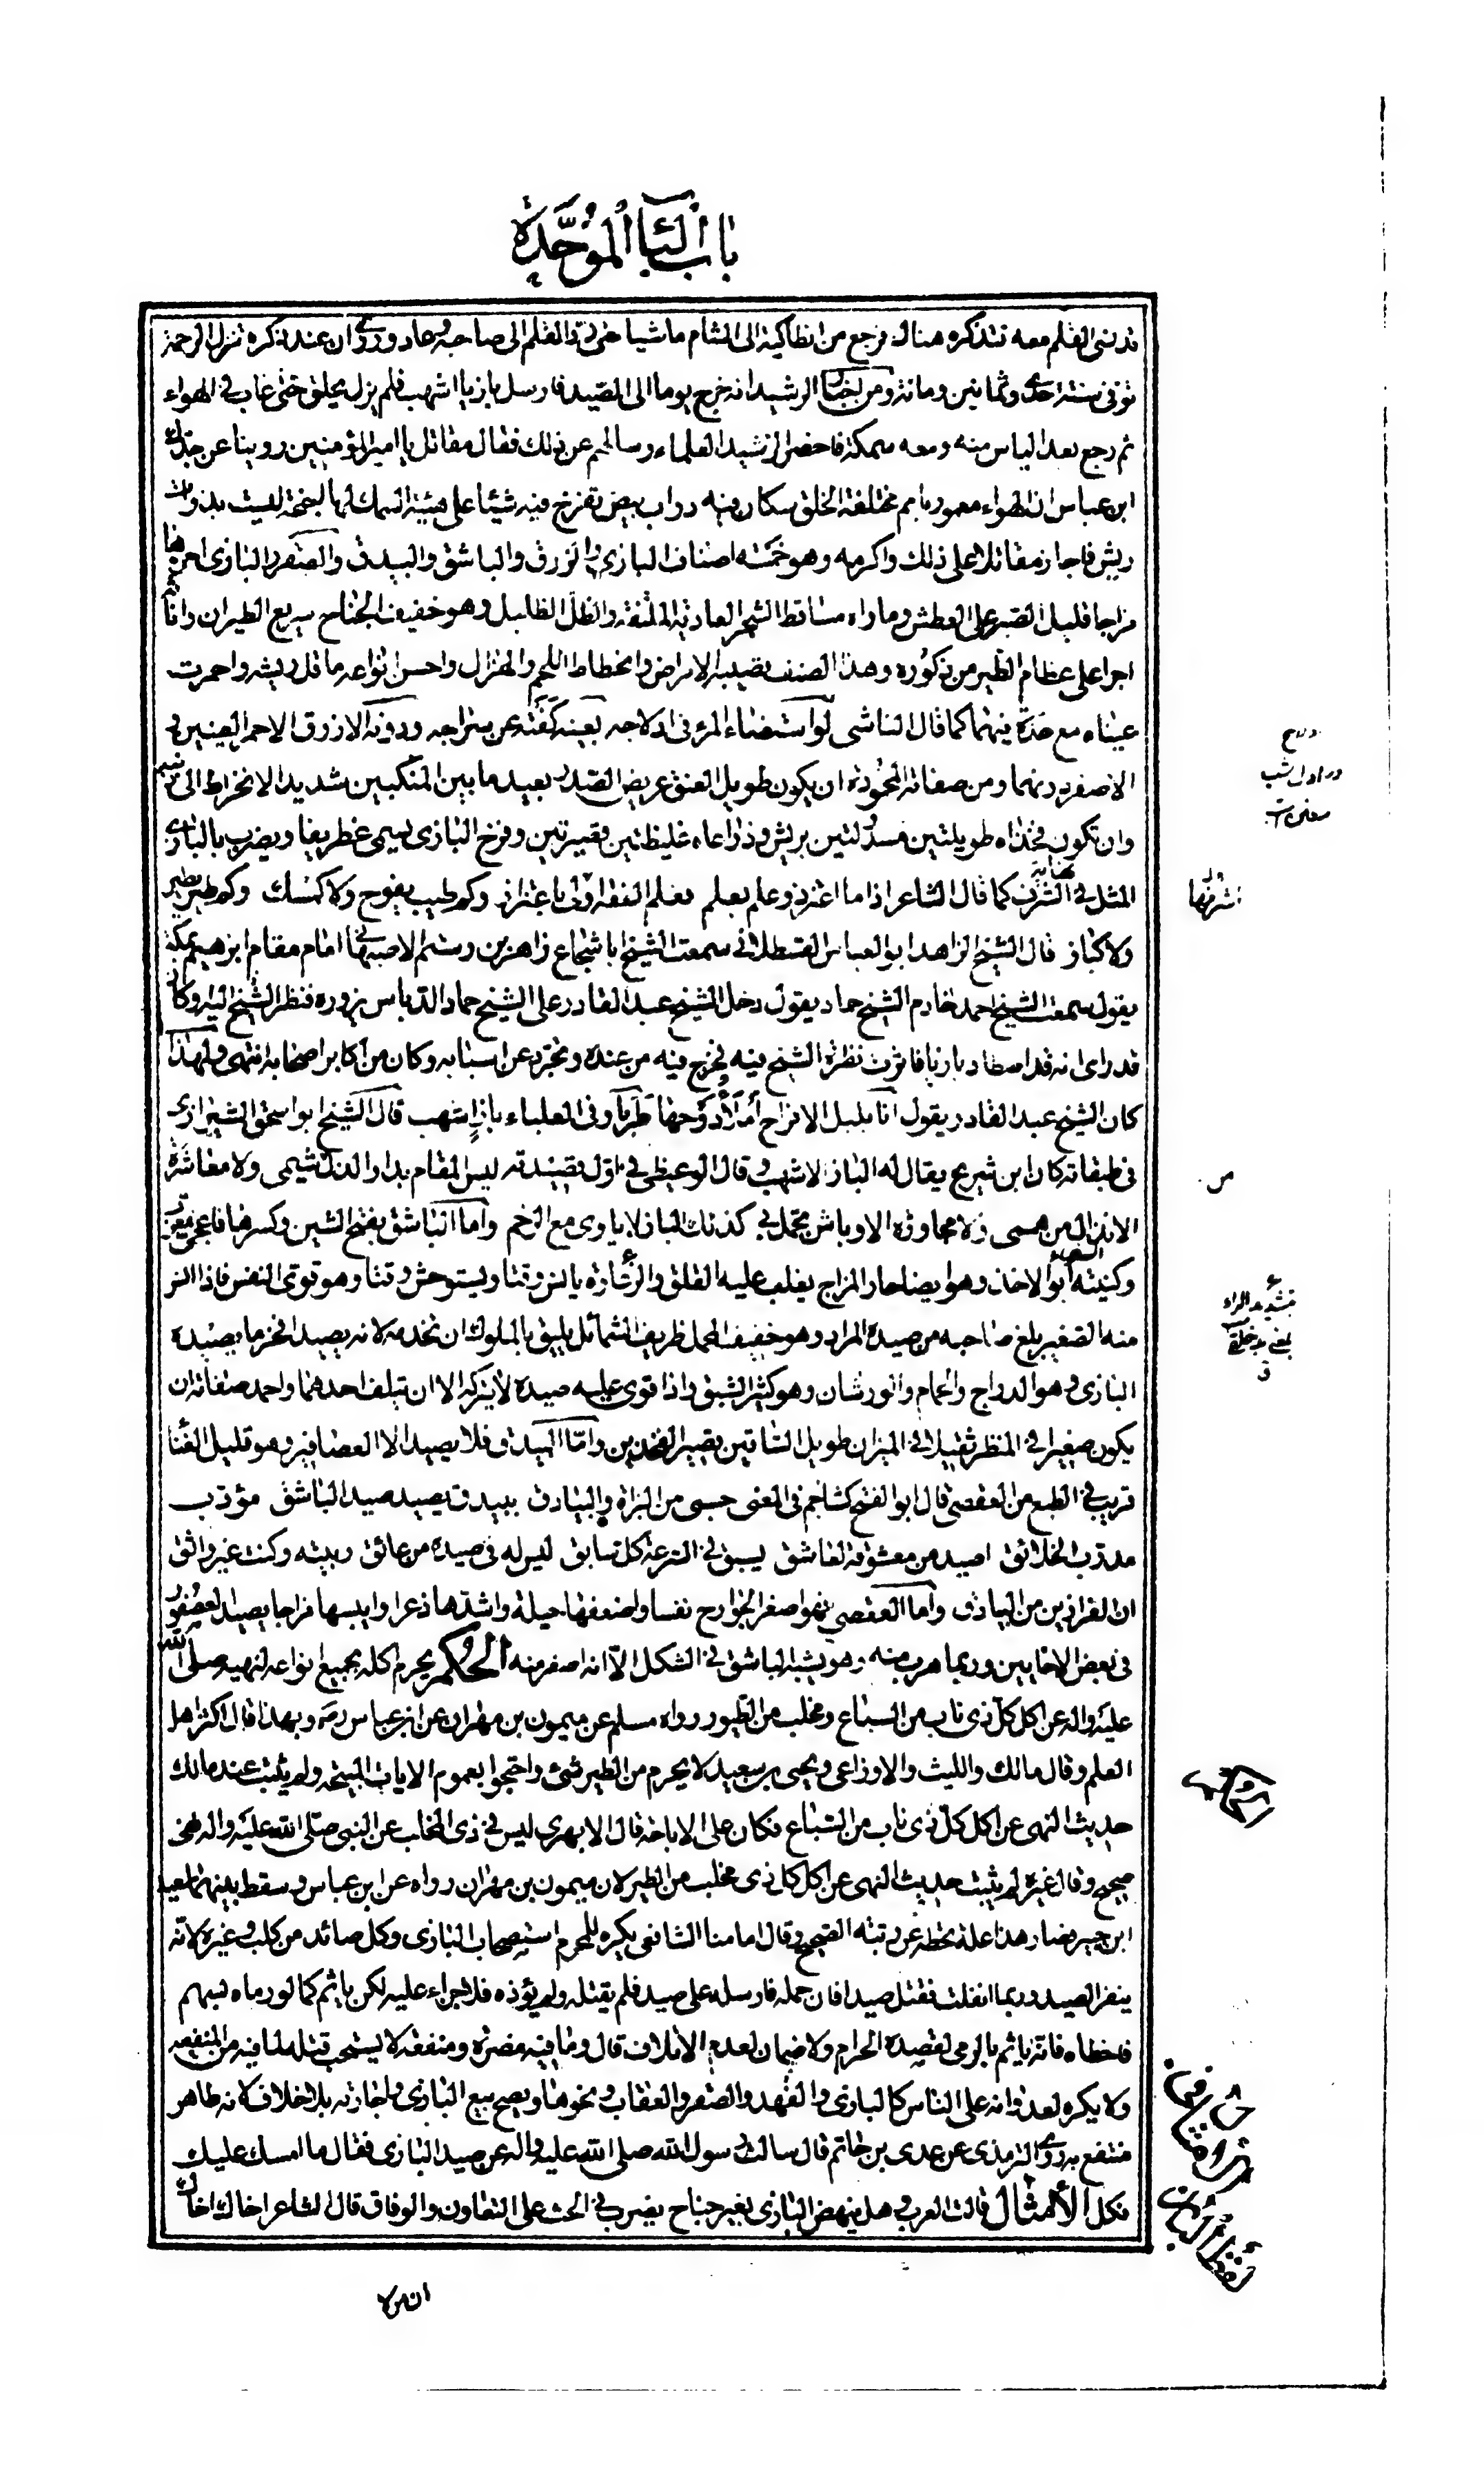 باب الباء الموحدة
قد نسى القلم معه فتذكره هناك فرجع من انطاكية الى الشام ماشيا حتى رد القلم الى صاحبه وعاد وروى ان عند ذكره تنزل الرحمة
توفى سنة احدى وثمانين ومائة ومن اخبار الرشيد انه خرج يوما الى الصيد فارسل بازيا اشهب فلم يزل يحلق حتى غاب فى الهواء
ثم رجع بعد الياس منه ومعه سمكة فاحضر الرشيد العلماء وسالهم عن ذلك فقال مقاتل يا امير المؤمنين روينا عن جدك
ابن عباس ان الهواء معمور بامم مختلفة الخلق سكان فيه دواب بيض تفرخ فيه شيئا على هيئة السمك لها اجنحة ليست بذوات
ريش فاجاز مقاتلا على ذلك واكرمه وهو خمسة اصناف البازى والزرق والباشق والبيدق والصقر والبازى احرها
مزاجا قليل الصبر على العطش وماواه مساقط الشجر العادية الملتفة والظل الظليل وهو خفيف الجناح سريع الطيران واناثه
اجرا على عظام الطير من ذكوره وهذا الصنف تصيبه الامراض وانحطاط اللحم والهزال واحسن انواعه ما قل ريشه واحمرت
عيناه مع حدة فيهما كما قال الناشى لو استضاء المرء فى ادلاجه بعينه كفته عن سراجه ودونه الازرق الاحمر العينين
الاصفر دونهما ومن صفاته المحمودة ان يكون طويل العنق عريض الصدر بعيد ما بين المنكبين شديد الانخراط الى ذنبه
وان تكون فخذاه طويلتين مسدلتين بريش وذراعاه غليظتين قصيرتين وفرخ البازى يسمى غطريفا ويضرب بالبازى
المثل فى نهاية الشرف كما قال الشاعر اذا ما اعتز ذو علم بعلم فعلم الفقه اولى باعتزاز وكم طيب يفوح ولا كمسك وكم طير يطير
ولا كباز قال الشيخ الزاهد ابو العباس القسطلانى سمعت الشيخ ابا شجاع زاهر بن رستم الاصبهانى امام مقام ابرهيم بمكة
يقول سمعت الشيخ احمد خادم الشيخ حماد يقول دخل الشيخ عبد القادر على الشيخ حماد الدباس يزوره فنظر الشيخ اليه وكان
قد راى انه قد اصطاد بازيا فاثرت نظرة الشيخ فيه فخرج فيه من عنده وتجرد عن اسبابه وكان من اكابر اصحابه انتهى ولهذا
كان الشيخ عبد القادر يقول انا بلبل الافراح املأ دوحها طربا وفى العلياء باز اشهب قال الشيخ ابو اسحق الشيرازى
فى طبقاته كان ابن شريح يقال له الباز الاشهب وقال الوعيظى فى اول قصيدته ليس المقام بدار الذل شيمى ولا معاشرة
الانذال من هممى ولا مجاورة الاوباش تجمل بى كذلك الباز لا ياوى مع الرخم واما الباشق بفتح الشين وكسرها فاعجمى معرب
وكنيته ابو الاخذ وهو ايضا حار المزاج يغلب عليه القلق والزعارة يانس وقتا ويستوحش وقتا وهو قوى النفس فاذا انس
منه الصغير بلغ صاحبه من صيده المراد وهو خفيف المحمل ظريف الشمائل يليق بالملوك ان تخدمه لانه يصيد افخر ما يصيده
البازى وهو الدراج والحمام والورشان وهو كثير الشبق واذا قوى عليه صيده لا يتركه الا ان يتلف احدهما واحمد صفاته ان
يكون صغيرا فى المنظر ثقيلا فى الميزان طويل الساقين قصير الفخذين واما البيدق فلا يصيد الا العصافير وهو قليل الغنا
قريب فى الطبع من العفصى قال ابو الفتح كشاجم فى المعنى حسبى من البزاة والبيادق ببيدق يصيد صيد الباشق مؤدب
مدرب الخلائق اصيد من معشوقة لعاشق يسبق فى السرعة كل سابق ليس له فى صيده من عائق ربيته وكنت غير واثق
ان الفرازين من البياذق واما العفصى فهو اصغر الجوارح نفسا واضعفها حيلة واشدها ذعرا وايبسها مزاجا يصيد العصفور
فى بعض الاحايين وربما هرب منه وهو يشبه الباشق فى الشكل الا انه اصغر منه الحكم يحرم اكله بجميع انواعه لنهيه صلى الله
عليه واله عن اكل كل ذى ناب من السباع ومخلب من الطيور رواه مسلم عن ميمون بن مهران عن ابن عباس رضه وبهذا قال اكثر اهل
العلم وقال مالك والليث والاوزاعى ويحيى بن سعيد لا يحرم من الطير شئ واحتجوا بعموم الايات المبيحة ولم يثبت عند مالك
حديث النهى عن اكل كل ذى ناب من السباع فكان على الاباحة قال الابهرى ليس فى ذى المخلب عن النبى صلى الله عليه واله نهى
صحيح وقال غيره لم يثبت حديث النهى عن اكل كل ذى مخلب من الطير لان ميمون بن مهران رواه عن ابن عباس وسقط بينهما سعيد
ابن جبير فصار هذا علة تحطه عن رتبته الصحيح وقال امامنا الشافعى يكره للمحرم استصحاب البازى وكل صائد من كلب وغيره لانه
ينفر الصيد وربما انفلت فقتل صيدا فان حمله فارسله على صيد فلم يقتله ولم يؤذه فلا جزاء عليه لكن ياثم كما لو رماه بسهم
فاخطاه فانه ياثم بالرمى لقصده الحرام ولا ضمان لعدم الاتلاف قال وما فيه مضرة ومنفعة لا يستحب قتله لما فيه من المنفعة
ولا يكره لعدوانه على الناس كالبازى والفهد والصقر والعقاب ونحوها ويصح بيع البازى واجارته بلا خلاف لانه طاهر
منتفع به روى الترمذى عن عدى بن حاتم قال سالت رسول الله صلى الله عليه واله عن صيد البازى فقال ما امسك عليك
فكل الأمثال قالت العرب وهل ينهض البازى بغير جناح يضرب فى الحث على التعاون والوفاق قال الشاعر اخاك اخاك
ان من لا
دلاج
در اول شب
شرفها
ص
بتشديد الراء
ق